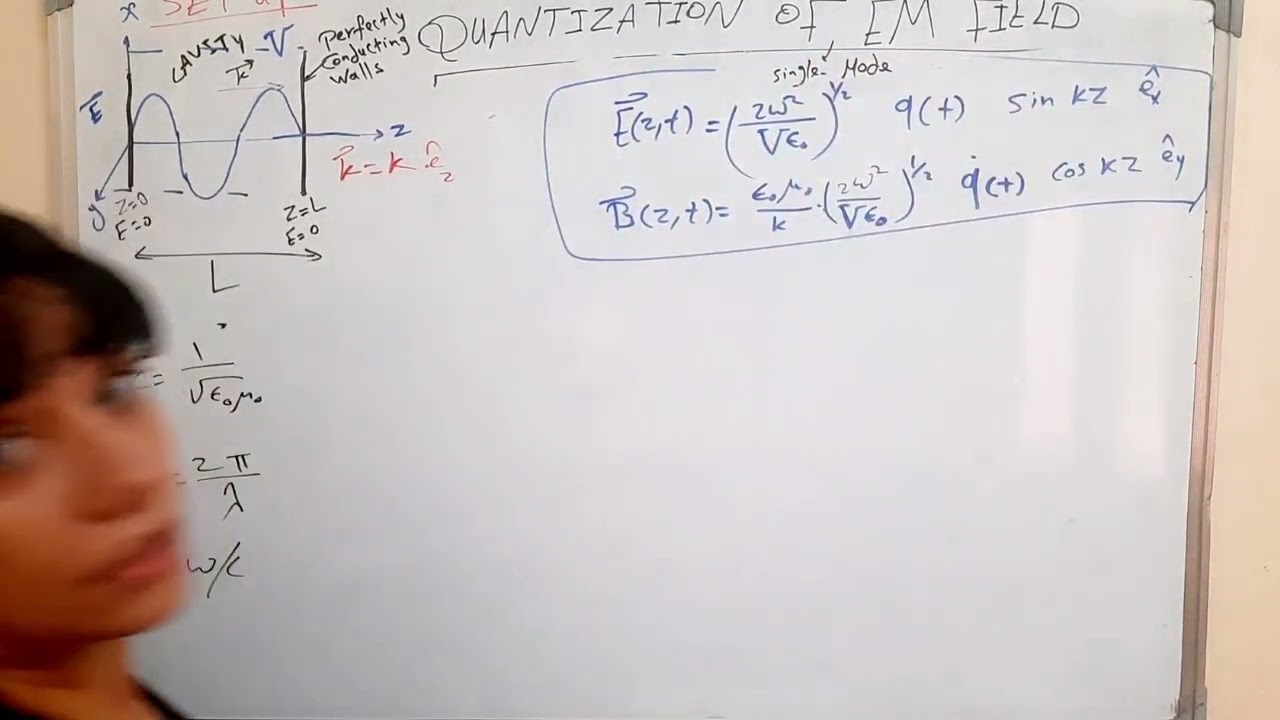 SET up
QUANTIZATION OF EM FIELD
single- Mode
x
CAVITY
V
Perfectly
Conducting
Walls
k⃗
E⃗
z
y
k⃗ = k ê_z
z=0
E=0
z=L
E=0
L
E⃗(z,t) = (2ω²/Vε₀)^1/2 q(t) sin kz ê_x
B⃗(z,t) = ε₀μ₀/k · (2ω²/Vε₀)^1/2 q̇(t) cos kz ê_y
= 1/√ε₀μ₀
= 2π/λ
ω/c